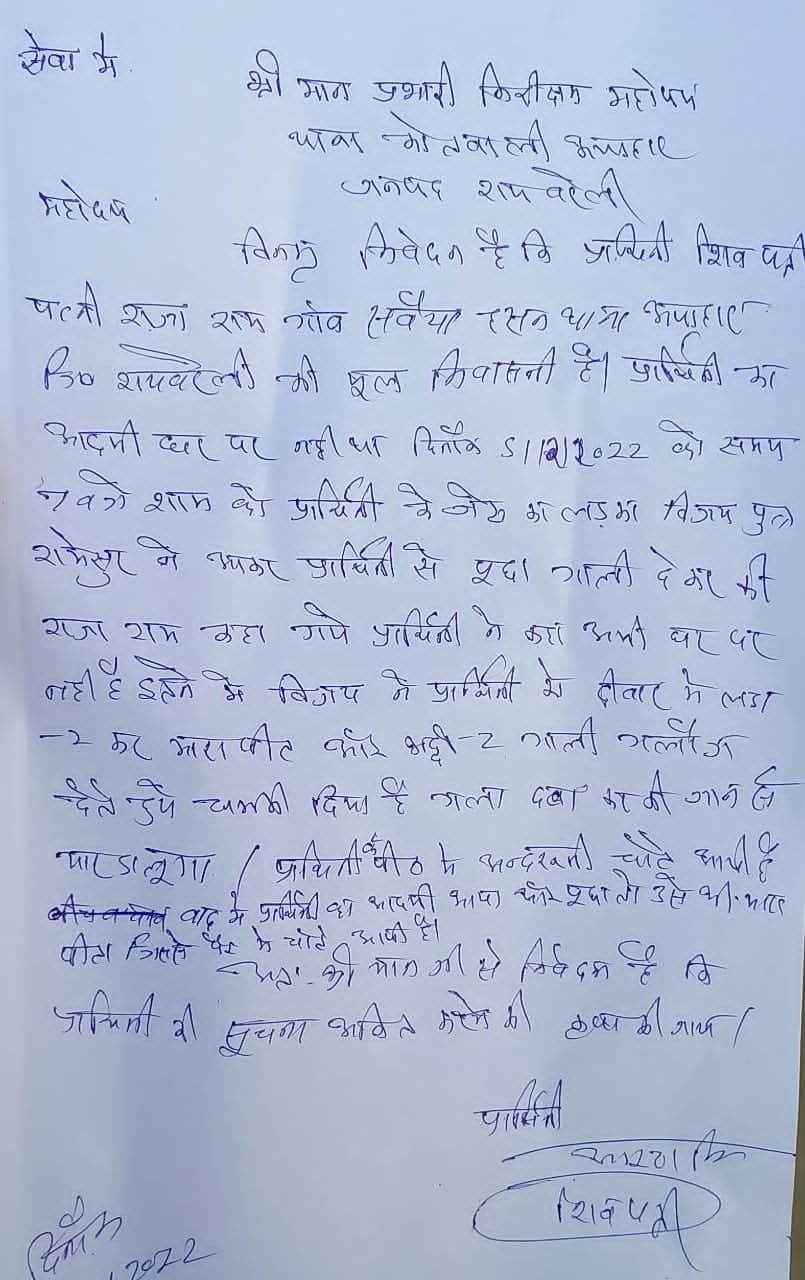 सेवा मे
श्री मान प्रभारी निरीक्षक महोदय
थाना कोतवाली ऊचाहार
जनपद रायबरेली
महोदय
विनम्र निवेदन है कि प्रार्थिनी शिव पत्नी
पत्नी राजा राम गांव सवैया हसन थाना ऊचाहार
जि० रायबरेली की मूल निवासनी है। प्रार्थिनी का
आदमी घर पर नही था दिनाँक 5/12/2022 को समय
7 बजे शाम को प्रार्थिनी के जेठ का लड़का विजय पुत्र
रामेसुर ने आकर प्रार्थिनी से पूछा गाली दे कर की
राजा राम कहा गये प्रार्थिनी ने कहा अभी घर पर
नही है इतने मे विजय ने प्रार्थिनी को दीवार मे लडा
-2 कर मारा पीट और भद्दी-2 गाली गलौज
देते हुये धमकी दिया है गला दबा कर की जान से
मार डालूगा / प्रार्थिनी के पीठ मे अन्दरूनी चोटे आयी है
बाद मे प्रार्थिनी का आदमी आया और पूछा तो उसे भी मारा
पीटा जिससे पैर मे चोटे आयी है।
अतः श्री मान जी से निवेदन है कि
प्रार्थिनी की सूचना अंकित करने की कृपा की जाय /
प्रार्थिनी
शिव पत्नी
दिनाँक
2022